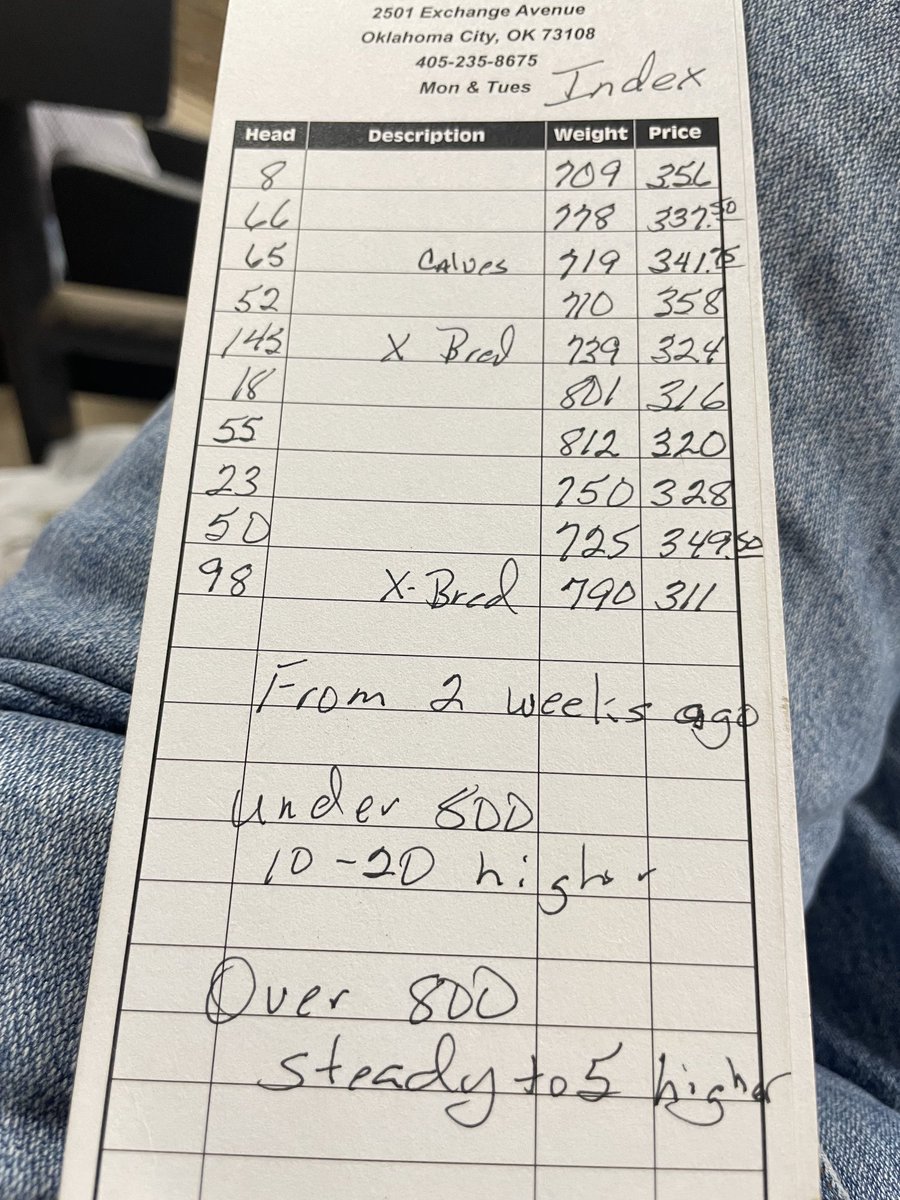 2501 Exchange Avenue
Oklahoma City, OK 73108
405-235-8675
Mon & Tues Index
Head Description Weight Price
8 709 356
66 778 337.50
65 Calves 719 341.75
52 710 358
143 X Bred 739 324
18 801 316
55 812 320
23 750 328
50 725 349.50
98 X-Bred 790 311
From 2 weeks ago
under 800
10-20 higher
Over 800
steady to 5 higher